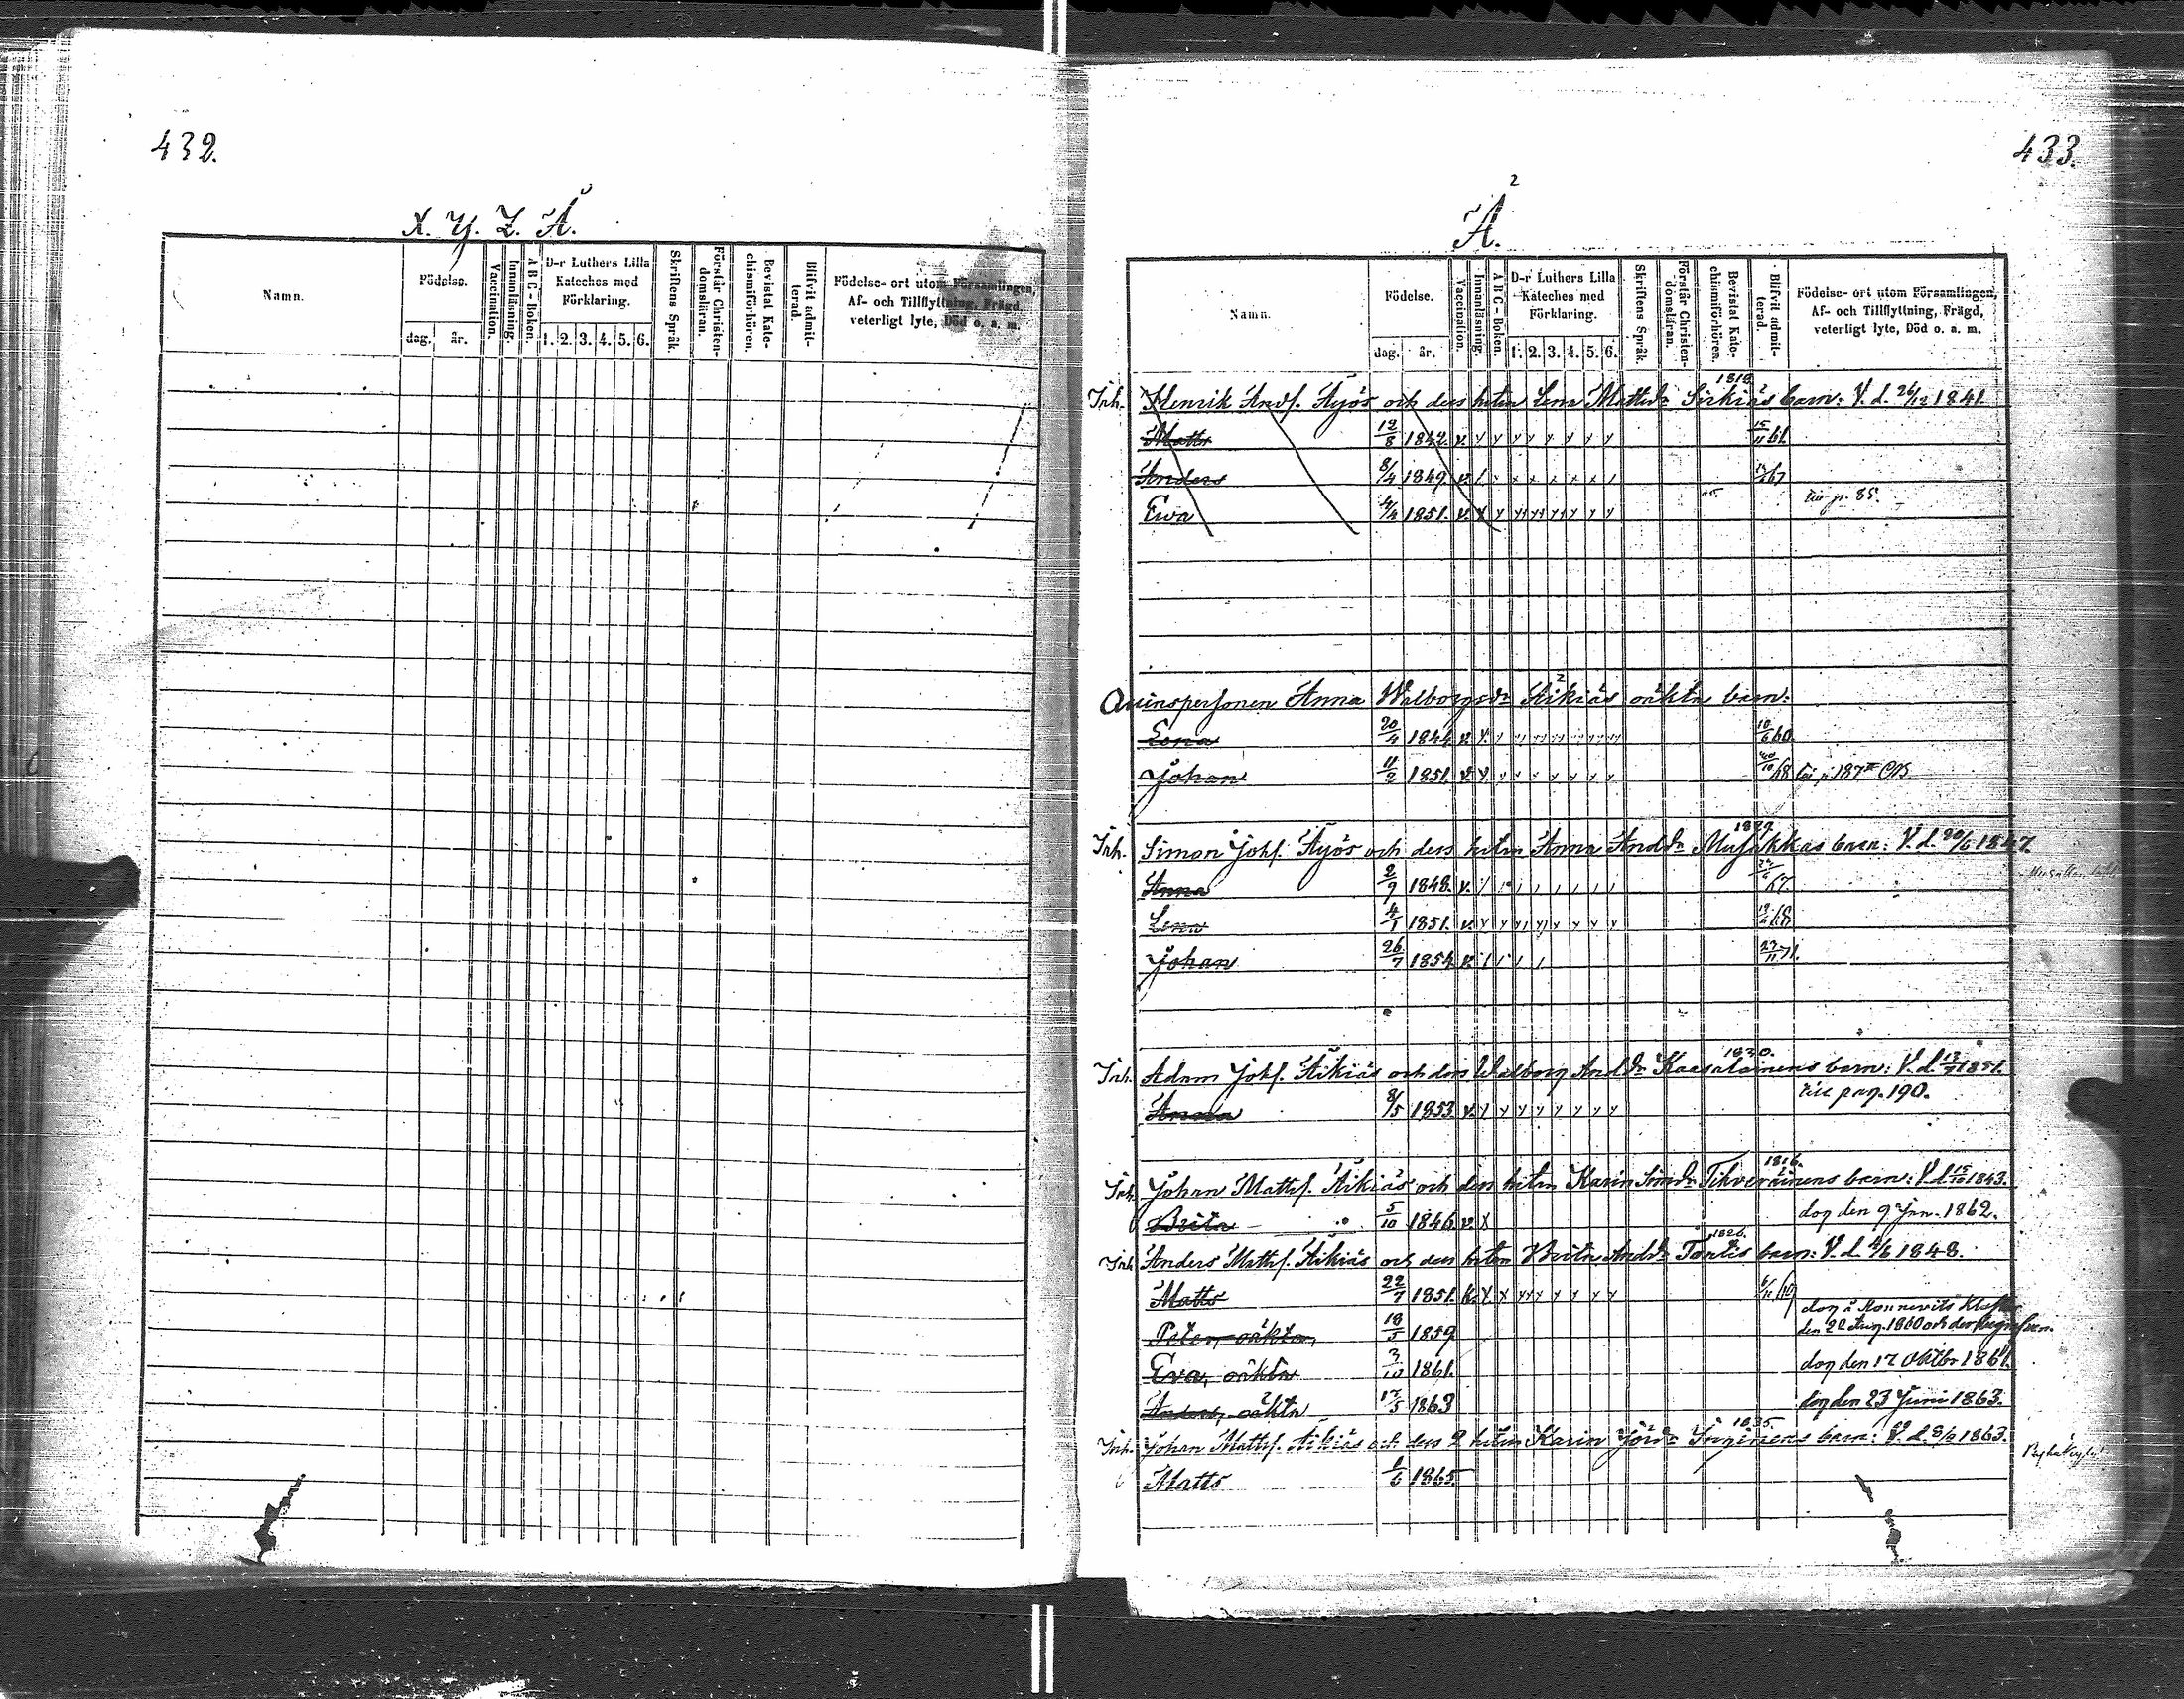 432.
X. Y. Z. Å.
Namn.
Födelse.
dag.
år.
Vaccination.
Innanläsning.
A B C - Boken.
D-r Luthers Lilla
Kateches med
Förklaring.
1. 2. 3. 4. 5. 6.
Skriftens Språk.
Förstår Christen-
domsläran.
Bevistat Kate-
chismiförhören.
Blifvit admit-
terad.
Födelse- ort utom Församlingen,
Af- och Tillflyttning, Frägd,
veterligt lyte, Död o. a. m.
433.
2
Ä.
Namn.
Födelse.
dag.
år.
Vaccination.
Innanläsning.
A B C - Boken.
D-r Luthers Lilla
Kateches med
Förklaring.
1. 2. 3. 4. 5. 6.
Skriftens Språk.
Förstår Christen-
domsläran.
Bevistat Kate-
chismiförhören.
Blifvit admit-
terad.
Födelse- ort utom Församlingen,
Af- och Tillflyttning, Frägd,
veterligt lyte, Död o. a. m.
1818
Inh. Henrik Andf. Äyös och dess hstru Lena Mattsdr Sirkiäs barn: V. d. 26/12 1841.
Matts 12/8 1842. v. 15/11 61.
Anders 8/4 1849. v. 67
Ewa 4/4 1851. v. till p. 85.
2
Qvinspersonen Anna Walborgsdr Äikiäs oäkta barn:
Lena 20/4 1844. v. 10/6 60.
Johan 11/2 1851. v. 68
1827.
Inh. Simon Johf. Äyös och dess hstru Anna Anddr Musakkas barn: V. d. 20/6 1847.
Anna 2/9 1848. v. 67.
Lena 4/1 1851. v. 68
Johan 26/7 1854 v. 23/11 71.
1830.
Inh. Adam Johf. Äikiäs och dess Walborg Anddr Kaasalainens barn: V. d. 13/7 1851.
till pag. 190.
Anna 8/5 1853. v.
1816.
Inh. Johan Mattsf. Äikiäs och dess hstru Karin Simdr Tihveräinens barn: V. d. 1843.
Brita 5/10 1846. v. dog den 9 Jan. 1862.
1826.
Inh. Anders Mattsf. Äikiäs och dess hstru Brita Anddr Tontis barn: V. d. 4/6 1848.
Matts 22/7 1851. v.
dog å Konnevits Kloster
Peter, oäkta, 18/5 1859 den 22 Aug. 1860 och der begrafven.
Eva, oäkta 3/10 1861. dog den 17 Oktbr 1861.
Anders, oäkta 17/5 1863 dog den 23 Juni 1863.
1835.
Inh. Johan Mattsf. Äikiäs och dess 2 hstru Karin Jördr Inginens barn: V. d. 8/2 1863.
Matts 1/6 1865.